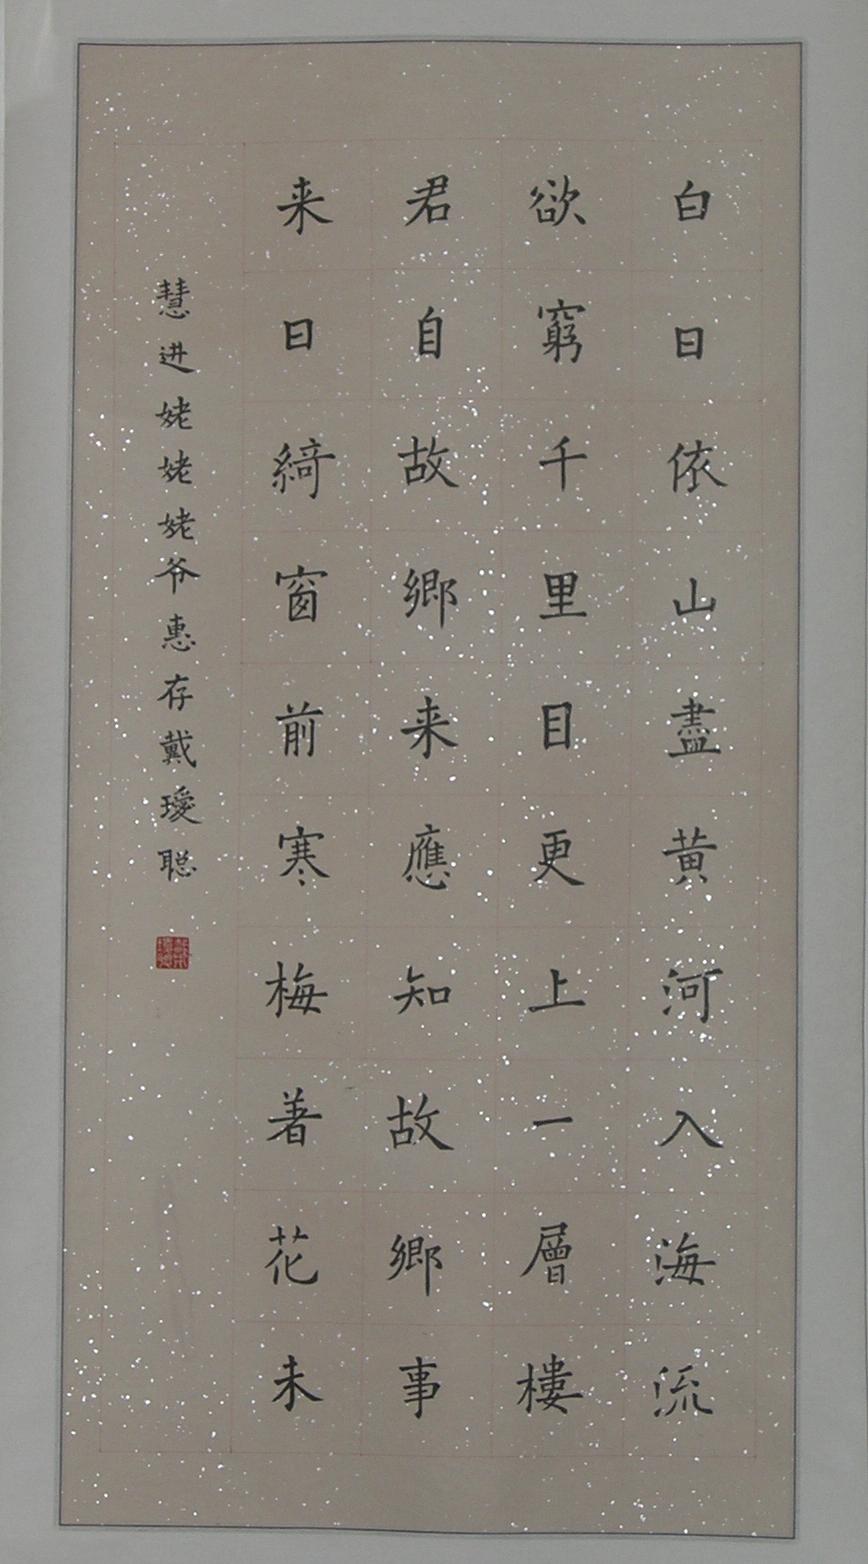 白日依山盡黄河入海流
欲窮千里目更上一層樓
君自故鄉来應知故鄉事
来日綺窗前寒梅著花未
慧进姥姥姥爷惠存戴璦聪